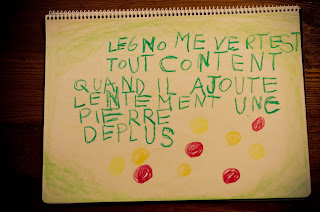 LEGNO ME VERT EST
TOUT CONTENT
QUAND IL AJOUTE
LENTEMENT UNE
PIERRE
DEPLUS